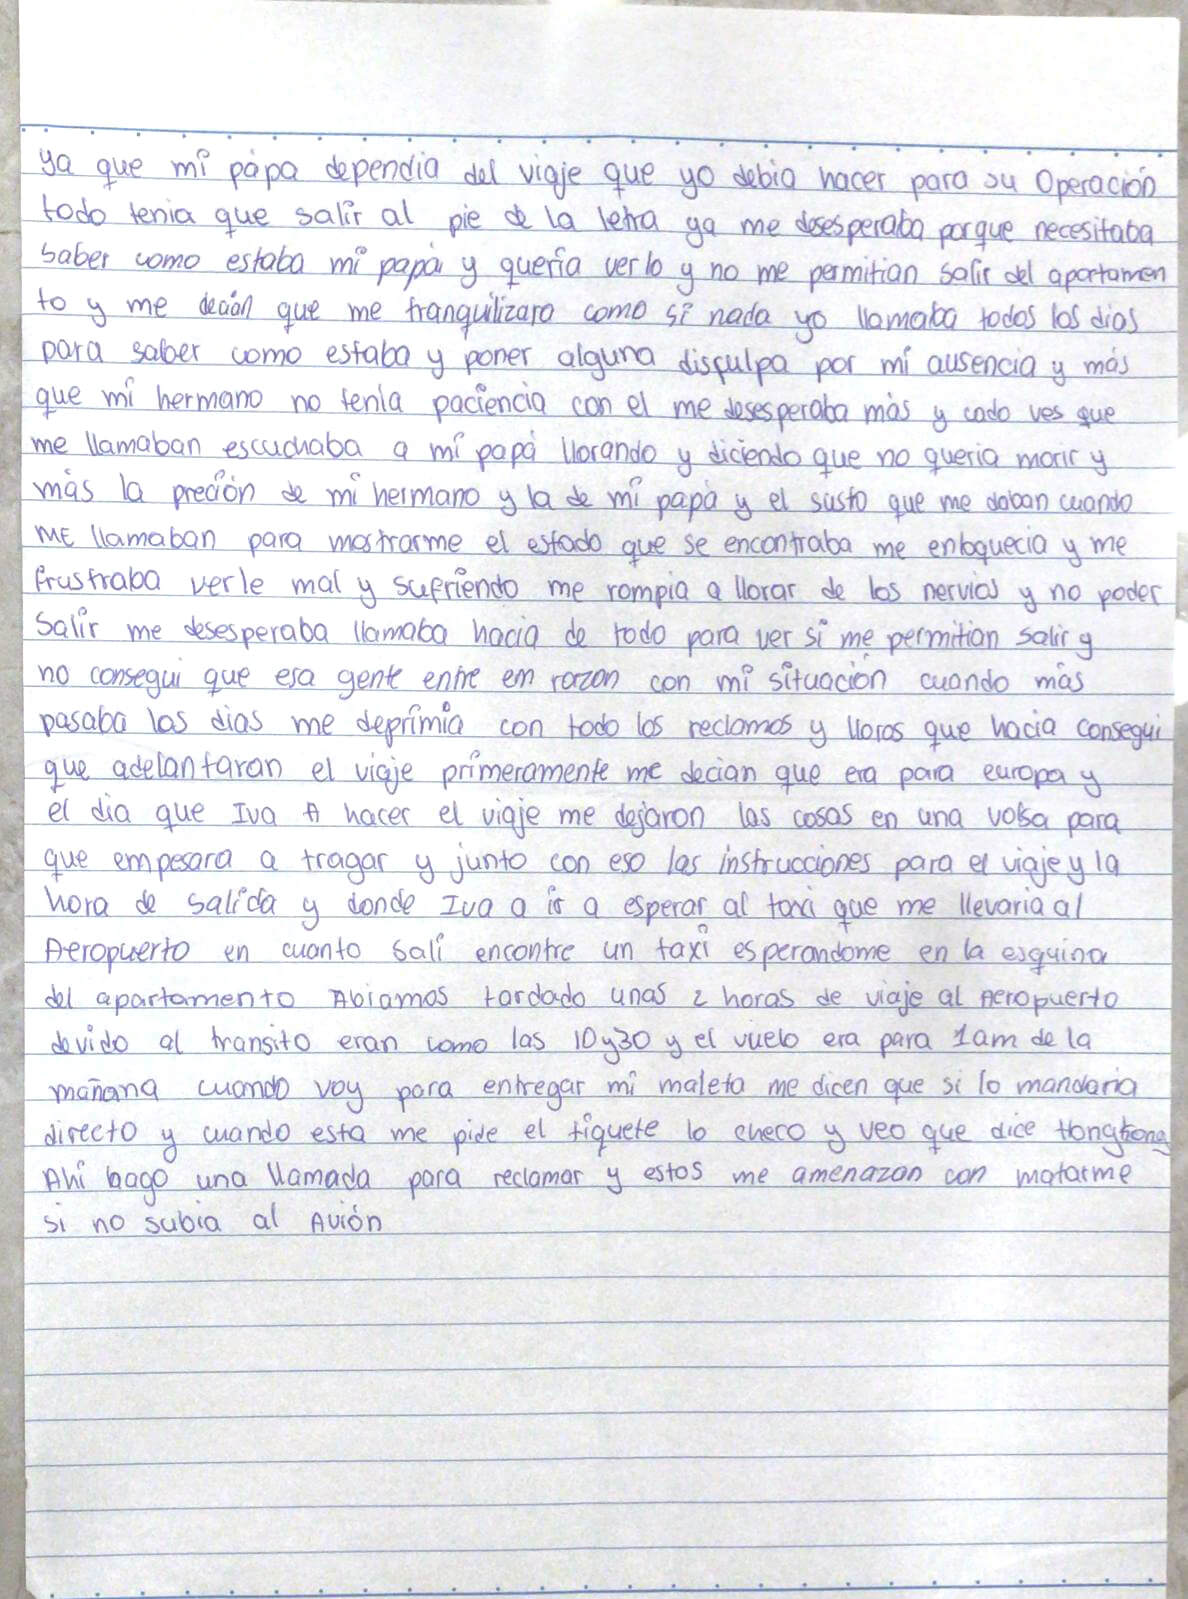 ya que mi pàpa dependia del viaje que yo debia hacer para su Operación
todo tenia que salir al pie de la letra ya me desesperaba porque necesitaba
saber como estaba mi papá y quería verlo y no me permitian salir del apartamen
to y me decián que me tranquilizara como si nada yo llamaba todos los dias
para saber como estaba y poner alguna disculpa por mi ausencia y más
que mi hermano no tenía paciencia con el me desesperaba más y cada ves que
me llamaban escuchaba a mi papá llorando y diciendo que no queria morir y
más la preción de mi hermano y la de mi papá y el susto que me daban cuando
ME llamaban para mostrarme el estado que se encontraba me enloquecia y me
frustraba verle mal y sufriendo me rompia a llorar de los nervios y no poder
Salir me desesperaba llamaba hacia de todo para ver si me permitian salir y
no consegui que esa gente entre em razon con mi situación cuando más
pasaba los dias me deprimia con todo los reclamos y lloros que hacia consegui
que adelantaran el viaje primeramente me decian que era para europa y
el dia que Iva A hacer el viaje me dejaron las cosas en una volsa para
que empesara a tragar y junto con eso las instrucciones para el viaje y la
hora de salida y donde Iva a ir a esperar al taxi que me llevaria al
Aeropuerto en cuanto Salí encontre un taxi esperandome en la esquina
del apartamento Abiamos tardado unas 2 horas de viaje al Aeropuerto
devido al transito eran como las 10y30 y el vuelo era para 1am de la
mañana cuando voy para entregar mi maleta me dicen que si lo mandaria
directo y cuando esta me pide el tiquete lo checo y veo que dice Hongkong
Ahi hago una llamada para reclamar y estos me amenazan con matarme
si no subia al Avión